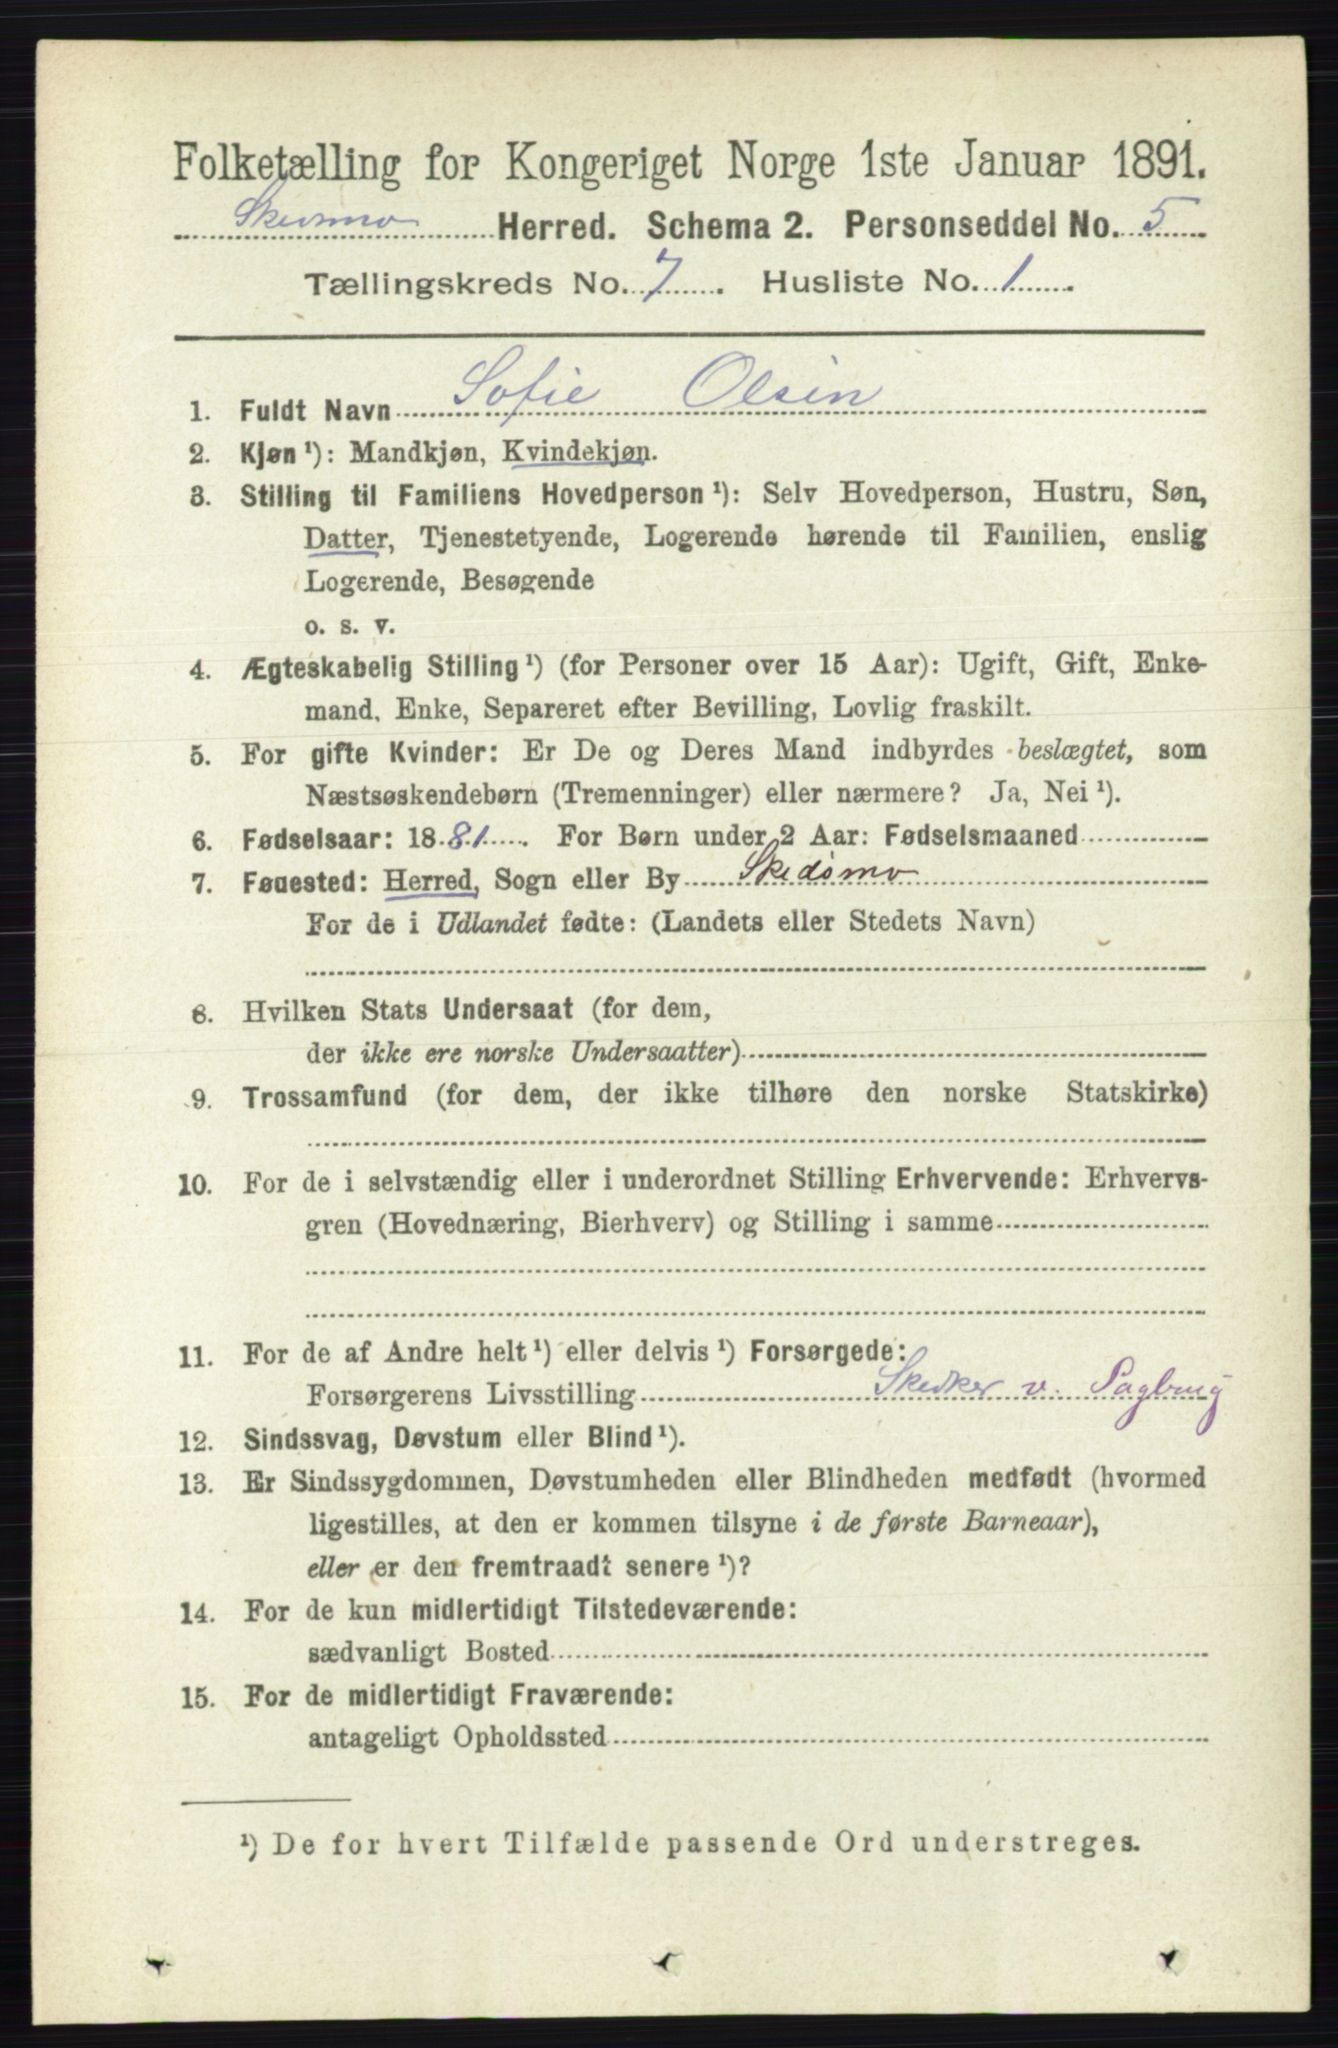 Folketælling for Kongeriget Norge 1ste Januar 1891.
Skedsmo Herred. Schema 2. Personseddel No. 5
Tællingskreds No. 7. Husliste No. 1.
1. Fuldt Navn Sofie Olsen
2. Kjøn ¹): Mandkjøn, Kvindekjøn.
3. Stilling til Familiens Hovedperson ¹): Selv Hovedperson, Hustru, Søn,
Datter, Tjenestetyende, Logerende hørende til Familien, enslig
Logerende, Besøgende
o. s. v.
4. Ægteskabelig Stilling ¹) (for Personer over 15 Aar): Ugift, Gift, Enke-
mand, Enke, Separeret efter Bevilling, Lovlig fraskilt.
5. For gifte Kvinder: Er De og Deres Mand indbyrdes beslægtet, som
Næstsøskendebørn (Tremenninger) eller nærmere? Ja, Nei ¹).
6. Fødselsaar: 1881. For Børn under 2 Aar: Fødselsmaaned
7. Føuested: Herred, Sogn eller By Skedsmo
For de i Udlandet fødte: (Landets eller Stedets Navn)
8. Hvilken Stats Undersaat (for dem,
der ikke ere norske Undersaatter)
9. Trossamfund (for dem, der ikke tilhøre den norske Statskirke)
10. For de i selvstændig eller i underordnet Stilling Erhvervende: Erhvervs-
gren (Hovednæring, Bierhverv) og Stilling i samme
11. For de af Andre helt ¹) eller delvis ¹) Forsørgede:
Forsørgerens Livsstilling v.
12. Sindssvag, Døvstum eller Blind ¹).
13. Er Sindssygdommen, Døvstumheden eller Blindheden medfødt (hvormed
ligestilles, at den er kommen tilsyne i de første Barneaar),
eller er den fremtraadt senere ¹)?
14. For de kun midlertidigt Tilstedeværende:
sædvanligt Bosted
15. For de midlertidigt Fraværende:
antageligt Opholdssted
¹) De for hvert Tilfælde passende Ord understreges.